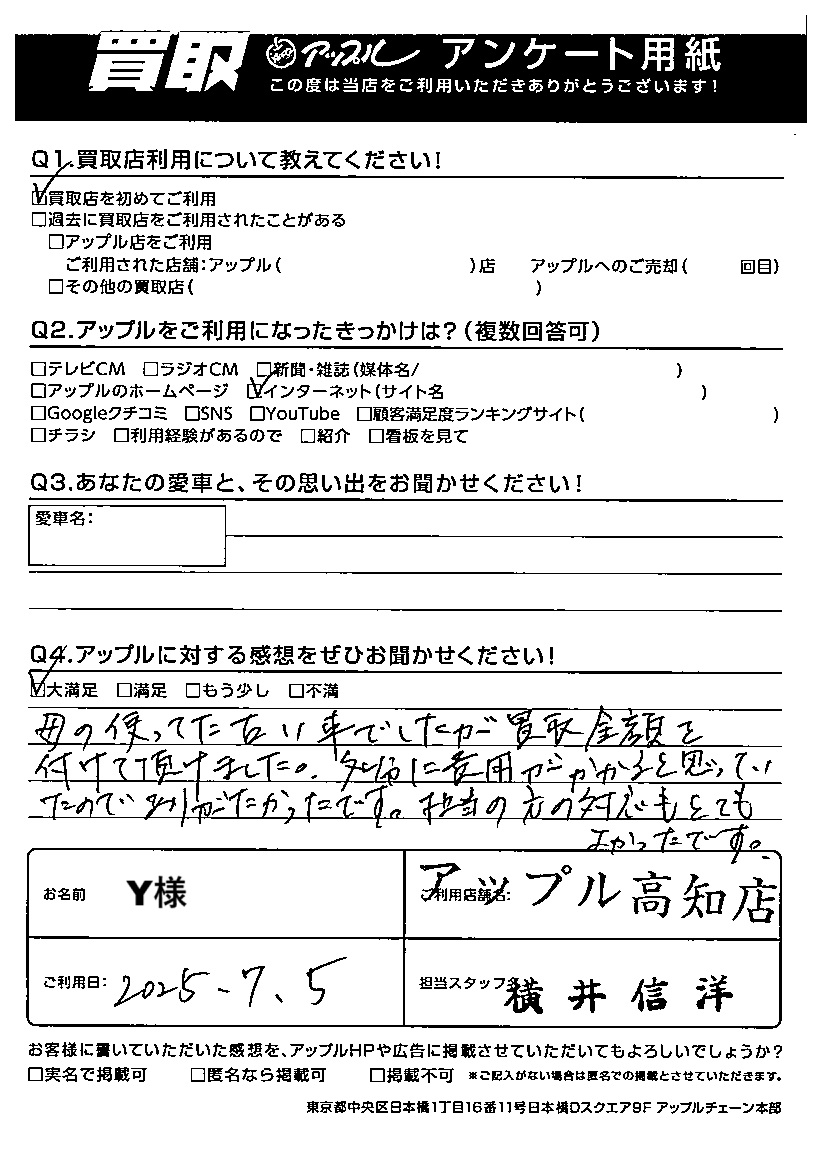 買取 アップル アンケート用紙
この度は当店をご利用いただきありがとうございます!
Q1.買取店利用について教えてください!
☑買取店を初めてご利用
□過去に買取店をご利用されたことがある
□アップル店をご利用
ご利用された店舗:アップル( )店 アップルへのご売却( 回目)
□その他の買取店( )
Q2.アップルをご利用になったきっかけは?(複数回答可)
□テレビCM □ラジオCM □新聞・雑誌(媒体名/ )
□アップルのホームページ ☑インターネット(サイト名 )
□Googleクチコミ □SNS □YouTube □顧客満足度ランキングサイト( )
□チラシ □利用経験があるので □紹介 □看板を見て
Q3.あなたの愛車と、その思い出をお聞かせください!
愛車名:
Q4.アップルに対する感想をぜひお聞かせください!
☑大満足 □満足 □もう少し □不満
母の使ってた古い車でしたが買取金額を
付けて頂けました。処分に費用がかかると思ってい
たのでありがたかったです。担当の方の対応もとても
よかったです。
お名前 Y様 ご利用店舗名: アップル高知店
ご利用日: 2025-7、5 担当スタッフ名 横井信洋
お客様に書いていただいた感想を、アップルHPや広告に掲載させていただいてもよろしいでしょうか?
□実名で掲載可 □匿名なら掲載可 □掲載不可 ※ご記入がない場合は匿名での掲載とさせていただきます。
東京都中央区日本橋1丁目16番11号日本橋Dスクエア9F アップルチェーン本部